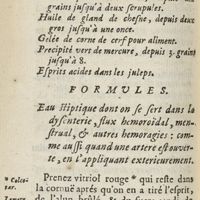 grains jusqu'à deux scrupules.
Huile de gland de chesne, depuis deux
gros jusqu'à une once.
Gelée de corne de cerf pour aliment.
Precipité vert de mercure, depuis 3. grains
jusqu'à 8.
Esprits acides dans les juleps.
FORMULES.
Eau stiptique dont on se sert dans la
dysenterie, flux hemoroïdal, men-
strual, & autres hemoragies : com-
me aussi quand une artere est ouver-
te, en l'appliquant exterieurement.
* Calco-
tar.
Prenez vitriol rouge * qui reste dans
la cornuë aprés qu'on en a tiré l'esprit,
de l'alun brûlé, &